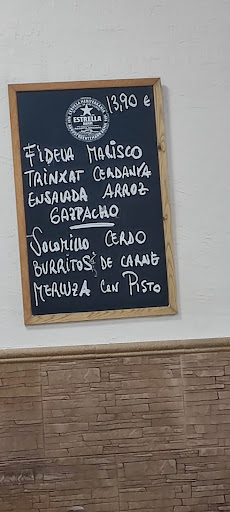 ESTRELLA
13,90 €
FIDEUA MARISCO
TRINXAT CERDANYA
ENSALADA ARROZ
GAZPACHO
SOLOMILLO CERDO
BURRITOS DE CARNE
MERLUZA CON PISTO